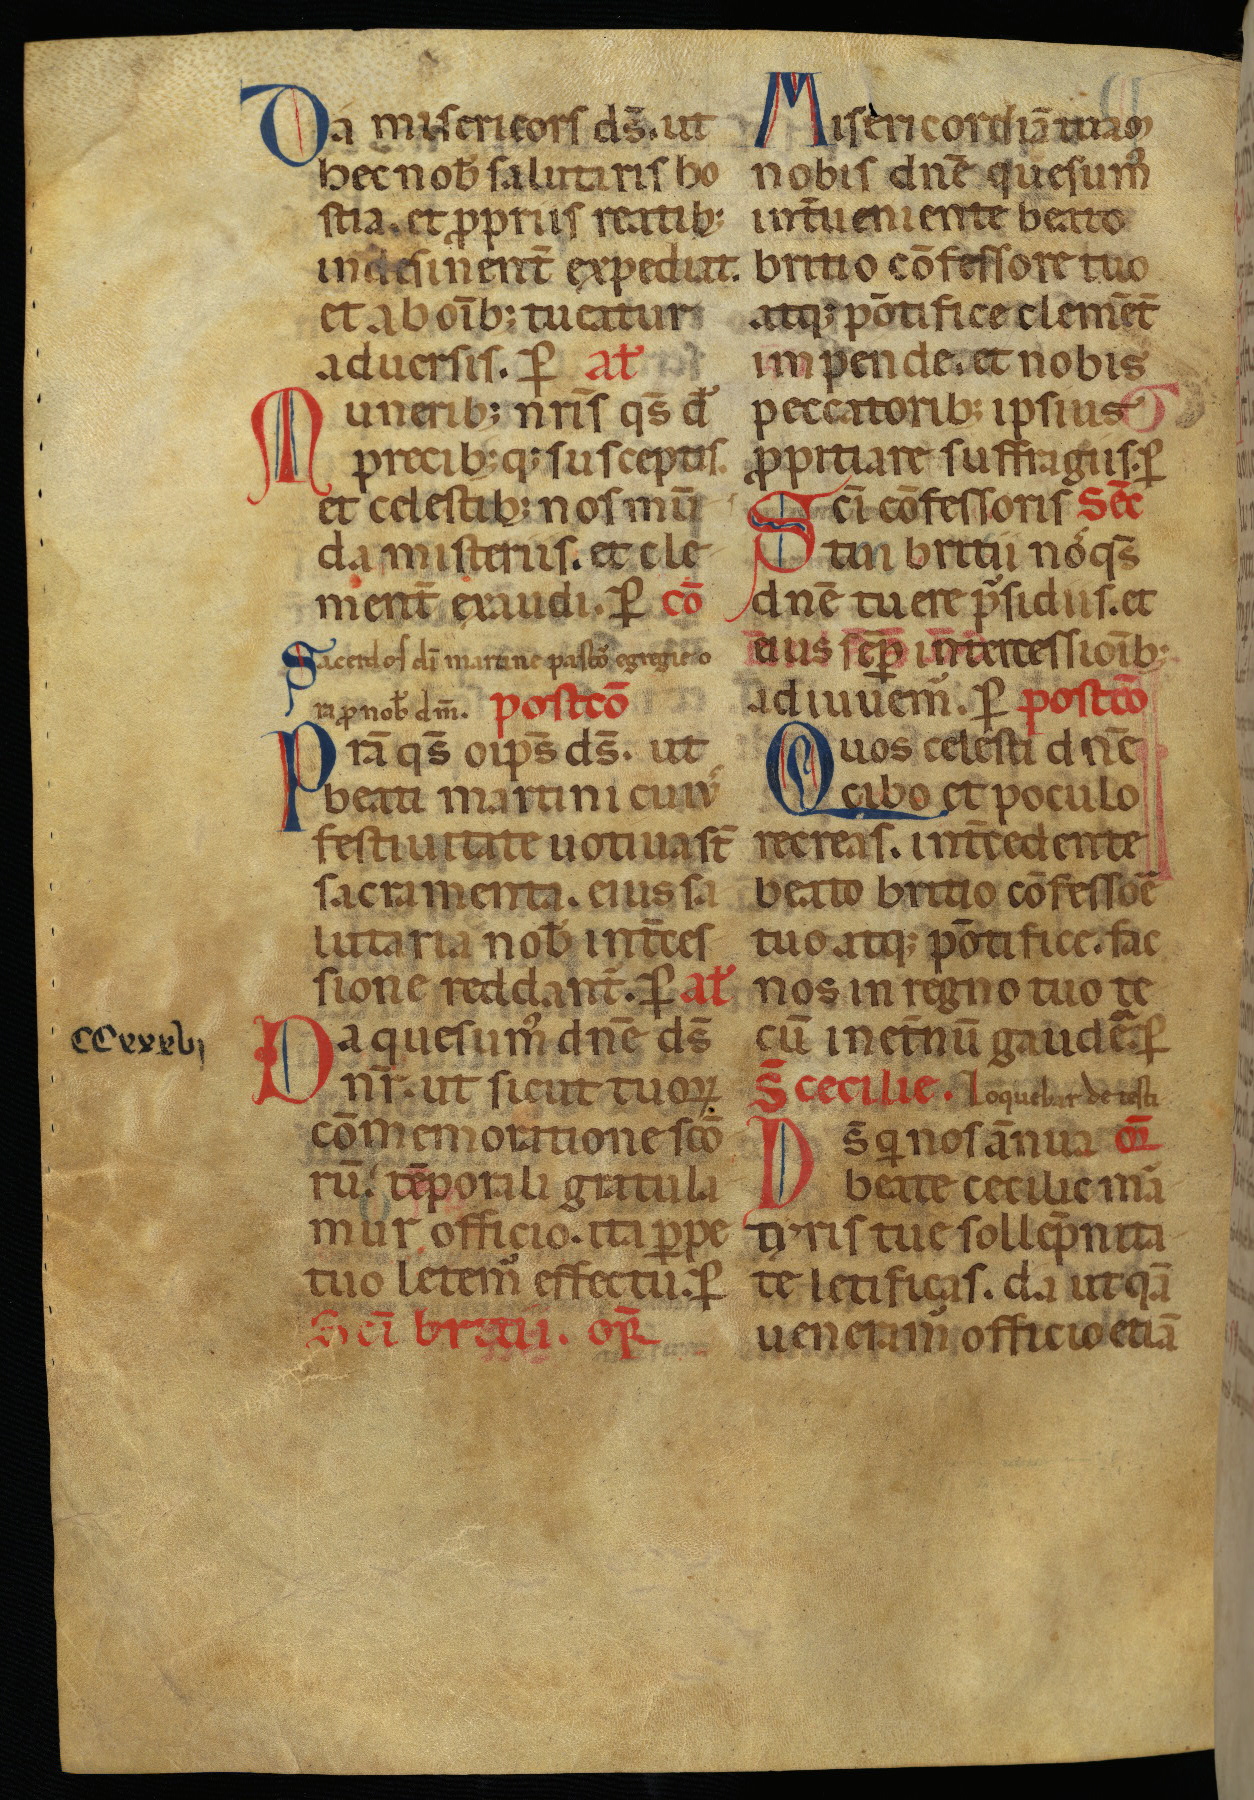 Da misericors ds̄. ut
hec nob̄ salutaris ho
stia. et ꝓpriis reatib;
indesinent̄ expediat.
et ab oīb; tueatur
aduersis. ꝑ al̄
Munerib; nr̄is qs̄ d̄
precib; q; susceptis.
et celestib; nos mū
da misteriis. et cle
ment̄ exaudi. ꝑ cō
Sacerdos dī martine pastor egregie o
ra ꝓ nob̄ dm̄. postcō
Prā qs̄ oīps̄ ds̄. ut
beati martini cuiꝰ
festiuitate uotiua st̄
sacramenta. eius sa
lutaria nob̄ int̄ces
sione reddant̄. ꝑ al̄
CCxxxvi
Da quesumꝰ dnē ds̄
nr̄. ut sicut tuoꝝ
cōmemoratione scō
rū. tēporali gratula
mur officio. ita ꝑpe
tuo letemꝰ effectu. ꝑ
Scī britii. or̄
Misericordiā tuam
nobis dnē quesumꝰ
int̄ueniente beato
britio cōfessore tuo
atq; pōtifice clemēt̄
impende. et nobis
peccatorib; ipsius
ꝓpitiare suffragiis. ꝑ
Scī cōfessoris Sec̄
tui britii nos qs̄
dnē tuere p̄sidiis. et
eius semꝑ intercessioīb;
adiuuemꝰ. ꝑ postcō
Quos celesti dnē
cibo et poculo
recreas. int̄cedente
beato britio cōfessoē
tuo atq; pōtifice. fac
nos in regno tuo te
cū inet̄nū gaudē. ꝑ
S̄ cecilie. Loquebar de testi
Ds̄ qi nos ānua or̄
beate cecilie mā
tyris tue sollēpnita
te letificas. da ut qā
ueneramꝰ officio etiā